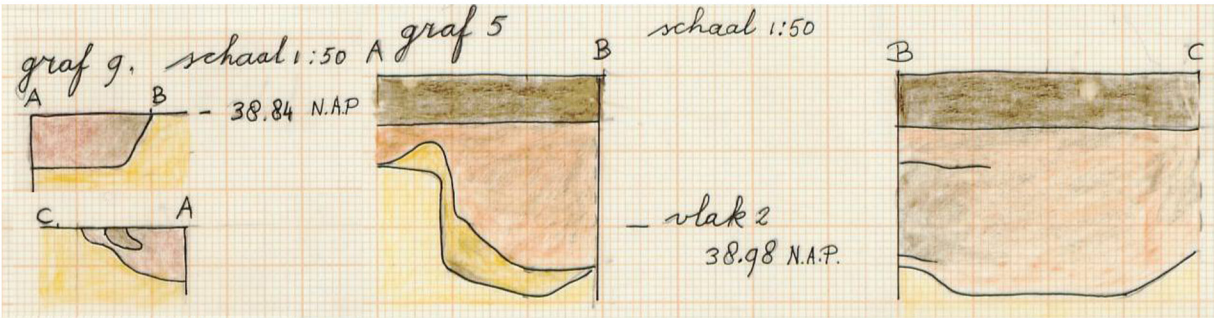 graf 9. schaal 1:50
A B
- 38.84 N.A.P
C. A
graf 5 schaal 1:50
A B
- vlak 2
38.98 N.A.P.
B C